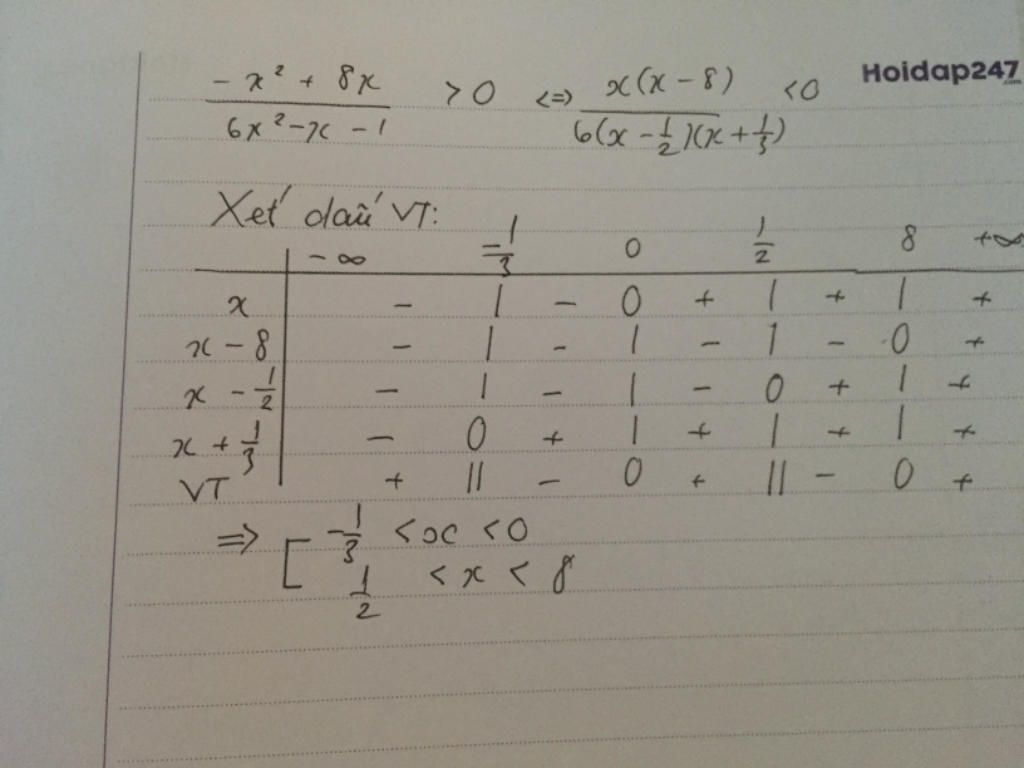 (-x² + 8x)/(6x² - x - 1) > 0 <=> x(x - 8)/(6(x - 1/2)(x + 1/3)) < 0
Hoidap247.com
Xét dấu VT:
-∞ -1/3 0 1/2 8 +∞
x - | - 0 + | + | +
x - 8 - | - | - | - 0 +
x - 1/2 - | - | - 0 + | +
x + 1/3 - 0 + | + | + | +
VT + || - 0 + || - 0 +
=> [ -1/3 < x < 0
1/2 < x < 8